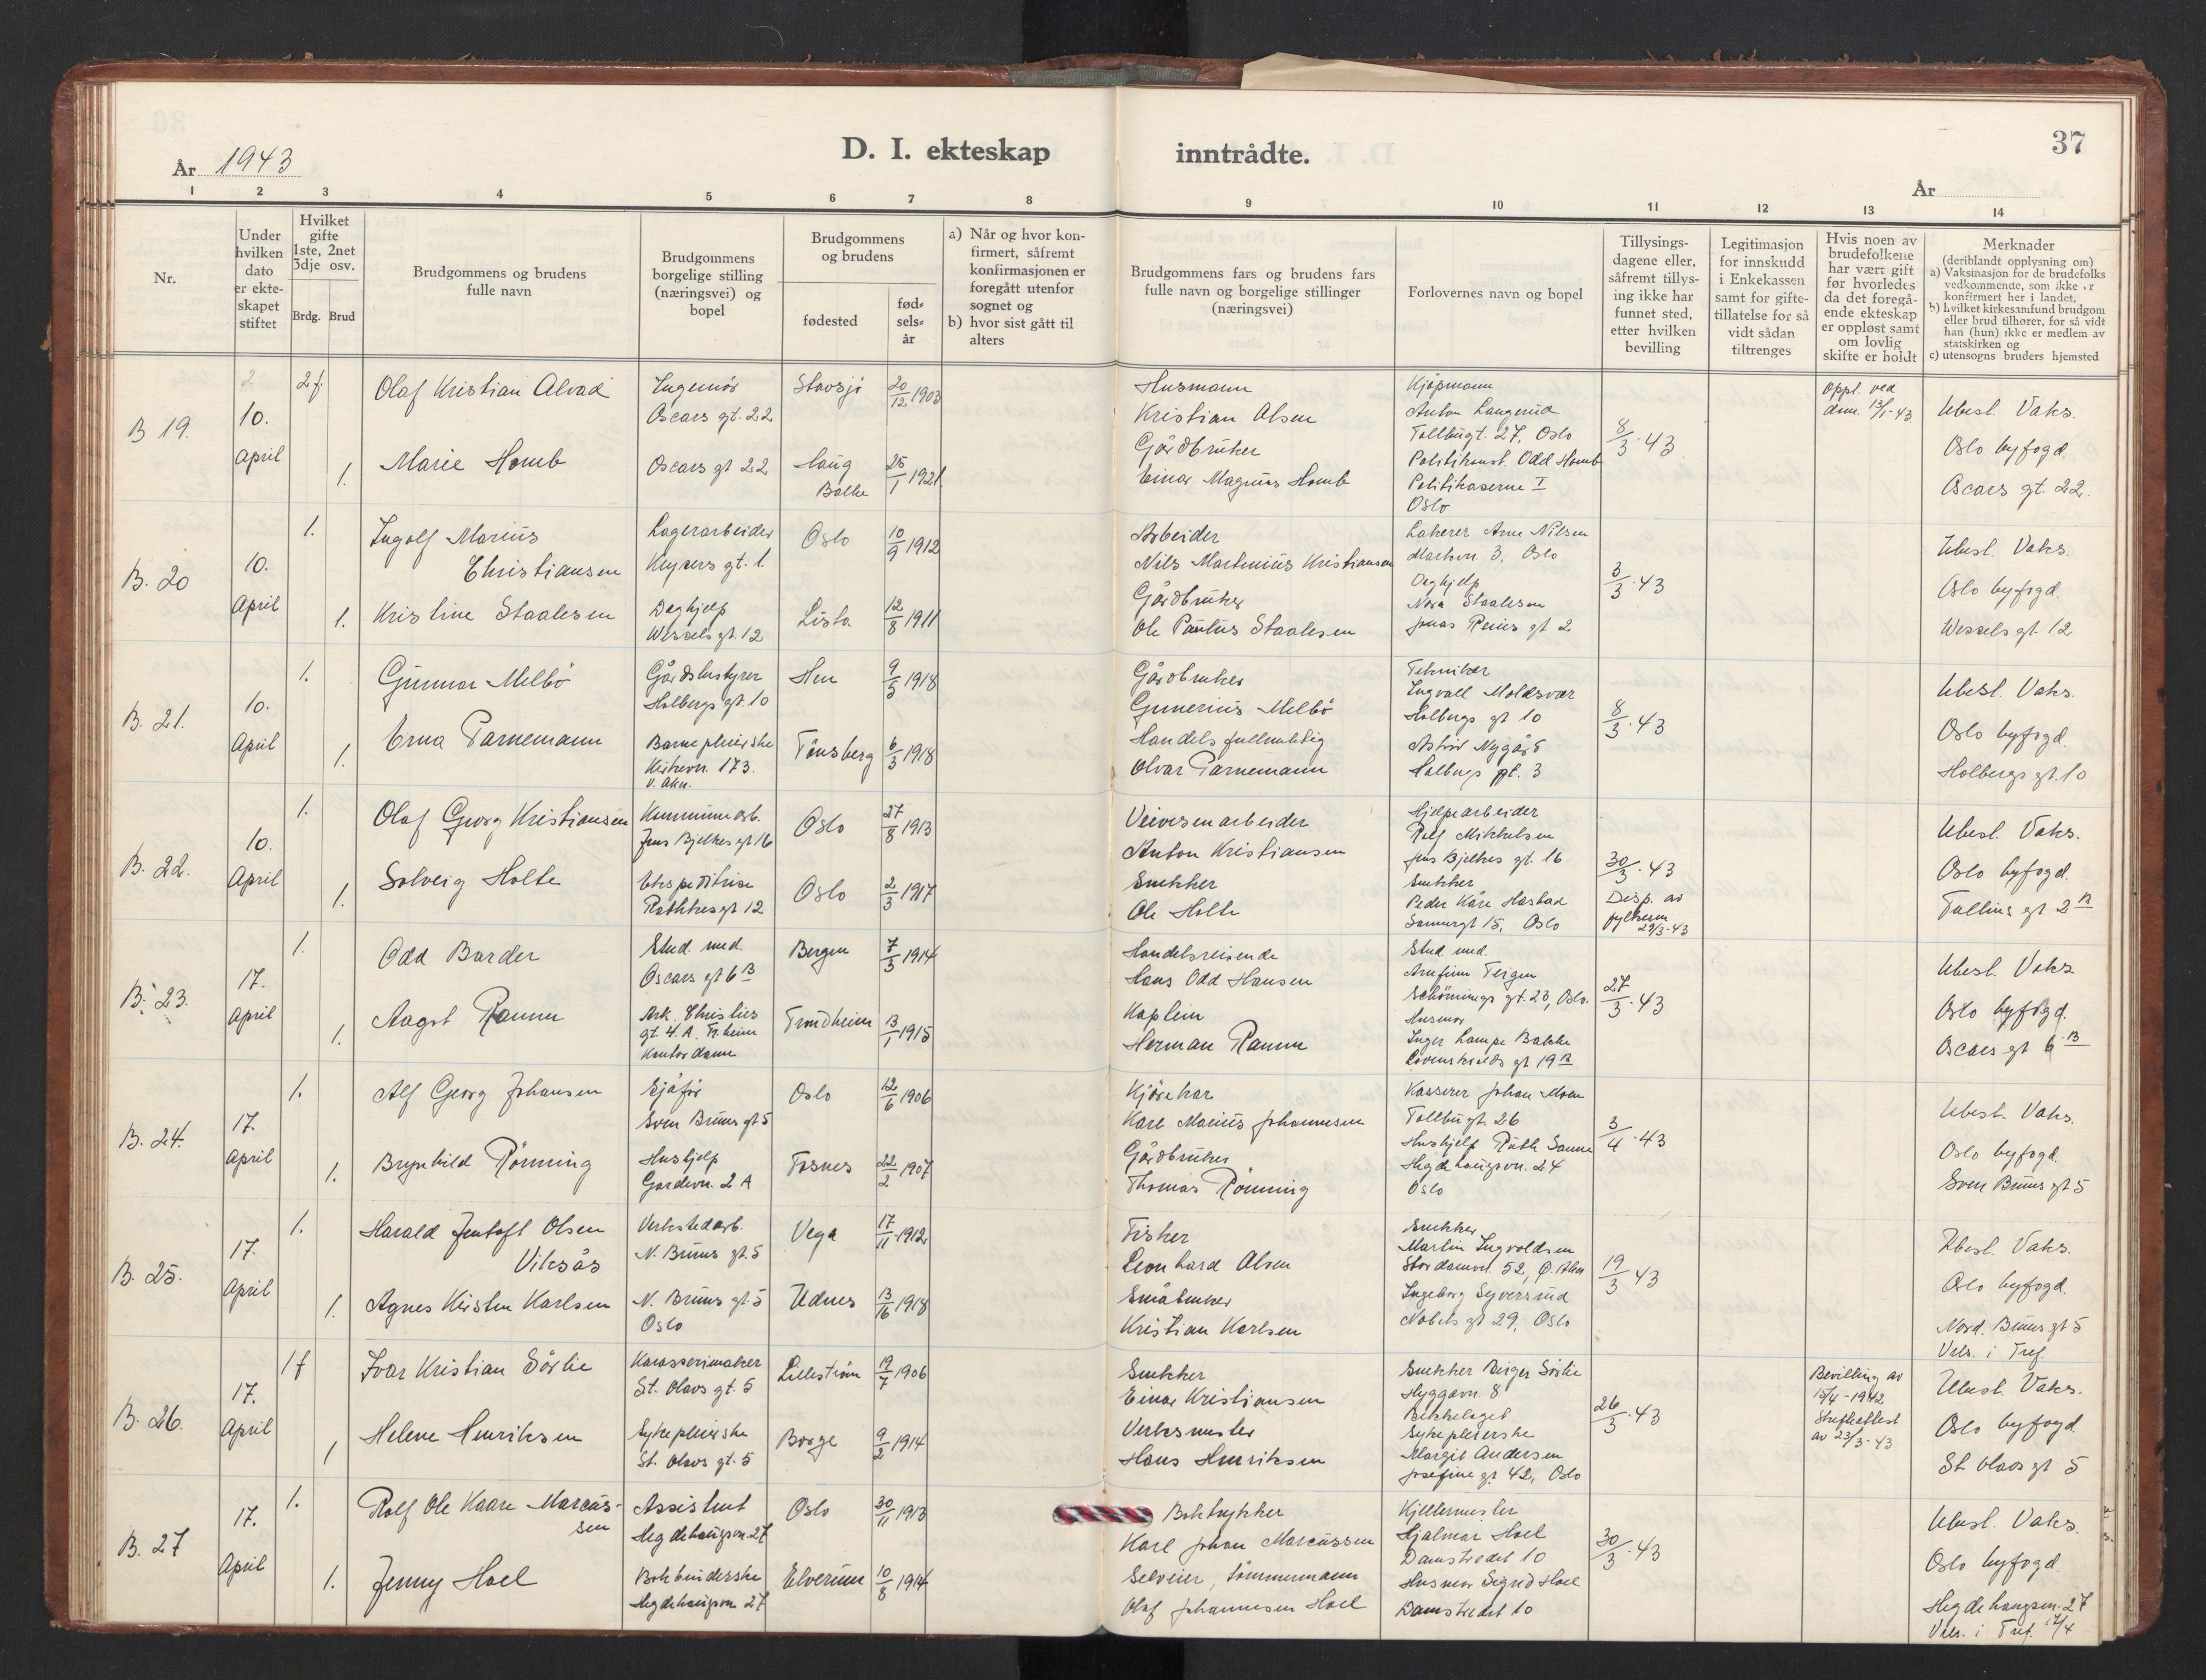 D. I. ekteskap inntrådte. 37
År 1943
År
1 2 3 4 5 6 7 8 9 10 11 12 13 14
Nr.
Under hvilken dato er ekte- skapet stiftet
Hvilket gifte 1ste, 2net 3dje osv.
Brdg. Brud
Brudgommens og brudens fulle navn
Brudgommens borgelige stilling (næringsvei) og bopel
Brudgommens og brudens
fødested
fød- sels- år
a) Når og hvor kon- firmert, såfremt konfirmasjonen er foregått utenfor sognet og
b) hvor sist gått til alters
Brudgommens fars og brudens fars fulle navn og borgelige stillinger (næringsvei)
Forlovernes navn og bopel
Tillysings- dagene eller, såfremt tillys- ing ikke har funnet sted, etter hvilken bevilling
Legitimasjon for innskudd i Enkekassen samt for gifte- tillatelse for så vidt sådan tiltrenges
Hvis noen av brudefolkene har vært gift før hvorledes da det foregå- ende ekteskap er oppløst samt om lovlig skifte er holdt
Merknader (deriblandt opplysning om)
a) Vaksinasjon for de brudefolks vedkommende, som ikke er konfirmert her i landet,
b) hvilket kirkesamfund brudgom eller brud tilhører, for så vidt han (hun) ikke er medlem av statskirken og
c) utensogns bruders hjemsted
B 19.
10. April
2 f.
1.
Olaf Kristian Alvad
Ingeniør
Oscars gt. 22
Stavsjø
20/12 1903
Marie Homb
Oscars gt 22
Haug
Balke
25/1 1921
Husmann
Kristian Olsen
Gårdbruker
Einar Magnus Homb
Kjøpmann
Anton Langerud
Tollbugt. 27, Oslo
Politikonst. Odd Homb
Politikaserne I
Oslo
8/3-43
Oppl. ved
dom. 13/1-43
Ubest. Vaks.
Oslo byfogd.
Oscars gt. 22.
B. 20
10. April
1.
1.
Ingolf Marius
Christiansen
Lagerarbeider
Keysers gt. 1
Oslo
10/9 1912
Kristine Staalesen
Daghjelp
Wessels gt. 12
Lista
12/8 1911
Arbeider
Nils Martinius Kristiansen
Gårdbruker
Ole Paulus Staalesen
Lakerer Arne Nilsen
Markvn. 3, Oslo
Daghjelp
Nora Staalesen
Jonas Reins gt 2
3/3-43
Ubest. Vaks.
Oslo byfogd.
Wessels gt. 12
B. 21.
10. April
1.
1.
Gunnar Melbö
Gårdsbestyrer
Holbergs gt. 10
Hen
9/5 1918
Erna Parnemann
Barnepleierske
Kirkevn. 173.
V. Aker.
Tönsberg
6/3 1918
Gårdbruker
Gunerius Melbö
Handelsfullmektig
Olvar Parnemann
Tekniker
Ingvall Moldsvær
Holbergs gt 10
Astrid Nygård
Holbergs gt. 3
8/3-43
Ubest. Vaks.
Oslo byfogd.
Holbergs gt. 10
B. 22.
10. April
1.
1.
Olaf Georg Kristiansen
Kommunearb.
Jens Bjelkes gt 16
Oslo
27/8 1913
Solveig Holte
Ekspeditrise
Rathkes gt 12
Oslo
2/3 1917
Veivesenarbeider
Anton Kristiansen
Snekker
Ole Holte
Hjelpearbeider
Rolf Mikkelsen
Jens Bjelkes gt. 16
Snekker
Peder Kåre Hastad
15, Oslo
30/3-43
Disp. av
29/3-43
Ubest. Vaks.
Oslo byfogd.
Tullins gt 2 B
B. 23.
17. April
1.
1.
Odd Barder
Stud. med.
Oscars gt 6 B
Bergen
7/3 1914
Aagot Ramm
Ark. Christies
gt. 4. A. Tr.heim
Kontordame
Trondheim
13/1 1915
Handelsreisende
Hans Odd Hansen
Kaptein
Herman Ramm
Stud. med.
Arnfinn Tergen
Schönings gt. 23, Oslo.
Husmor
Inger Lampe Bakke
Lövenskiolds gt 19 B
27/3-43
Ubest. Vaks
Oslo byfogd.
Oscars gt 6 B
B. 24.
17. April
1.
1.
Alf Georg Johansen
Sjåför
Sven Bruns gt 5
Oslo
12/6 1906
Brynhild Rönning
Hushjelp
Gardevn. 2 A
Fosnes
22/2 1907
Kjörekar
Karl Marius Johannesen
Gårdbruker
Thomas Rönning
Kasserer Johan Moen
Tollbu gt. 26
Hushjelp Ruth Sanne
Hegdehaugsvn. 24
Oslo
3/4-43
Ubest. Vaks.
Oslo byfogd.
Sven Bruns gt 5
B. 25.
17. April
1.
1.
Harald Jentoft Olsen
Viksås
Verkstedarb.
N. Bruns gt. 5
Vega
17/11 1912
Agnes Kirsten Karlsen
N. Bruns gt 5
Oslo
Udnes
13/16 1918
Fisker
Leonhard Olsen
Småbruker
Kristian Karlsen
Snekker
Martin Ingvoldsen
Stordamvei 52, Ø. Aker
Ingeborg Syversrud
Nobels gt 29, Oslo
19/3 43
Ubest. Vaks.
Oslo byfogd.
Nord. Bruns gt 5
Vels. i Tref.
B. 26.
17. April
1 f
1
Ivar Kristian Sörlie
Karosserimaker
St. Olavs gt. 5
Lilleström
19/7 1906
Helene Henriksen
Sykepleierske
St. Olavs gt. 5
Borge
9/2 1914
Snekker
Einar Kristiansen
Verksmester
Hans Henriksen
Snekker Birger Sörlie
Hyggavn. 8
Bekkelaget
Sykepleierske
Margit Andersen
Josefine gt. 42, Oslo
26/3-43
Bevilling av
15/4-1942
Skifteattest
av 23/3-43
Ubest. Vaks.
Oslo byfogd.
St. Olavs gt 5
B. 27
17. April
1.
1.
Rolf Ole Kaare Marcus-
sen
Assistent
Hegdehaugsvn. 27
Oslo
30/11 1913
Jenny Hoel
Bokbinderske
Hegdehaugsvn 27
Elverum
10/8 1914
Boktrykker
Karl Johan Marcussen
Selveier, tömmermann
Olaf Johannesen Hoel
Kjellermester
Hjalmar Hoel
Damstredet 10
Husmor Sigrid Hoel
Damstredet 10
30/3-43
Ubest. Vaks.
Oslo byfogd.
Hegdehaugsvn. 27
Vels. i Tref. 17/4